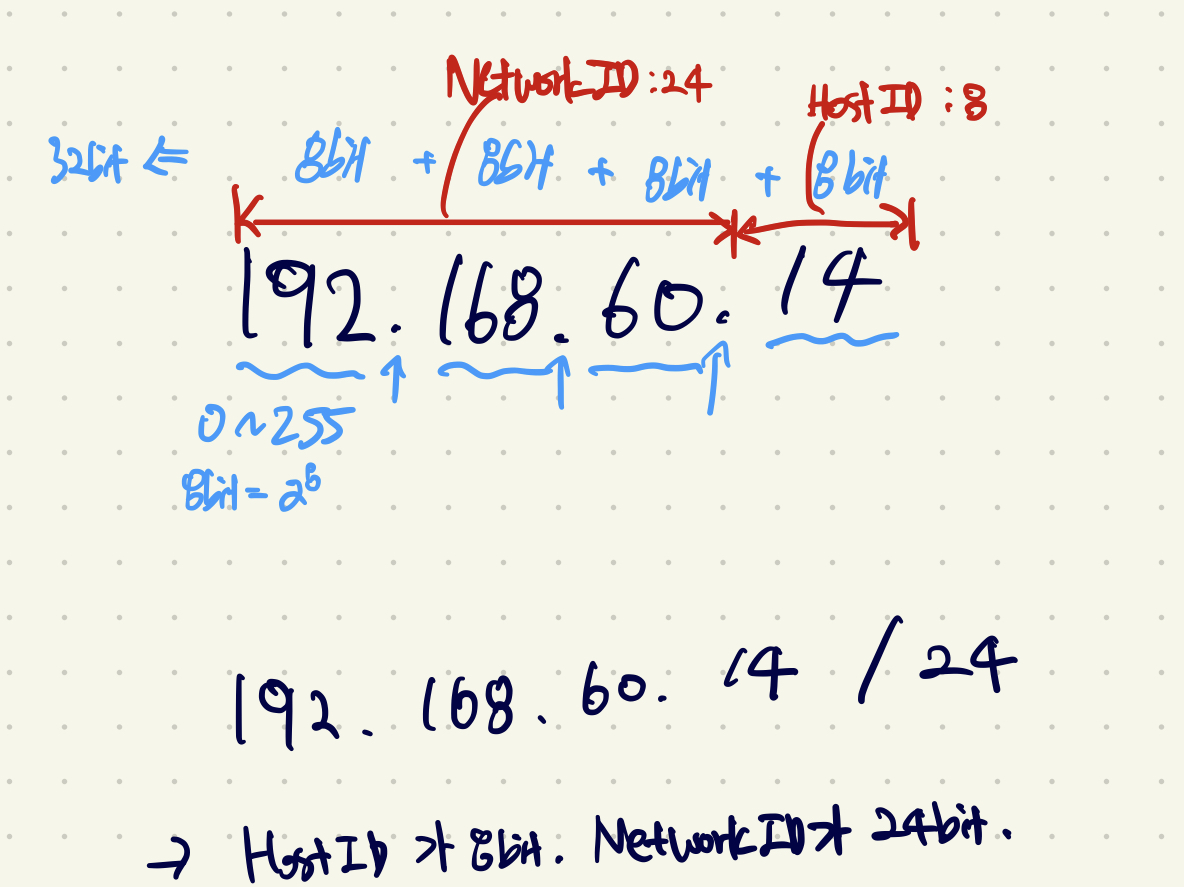 Network ID : 24
Host ID : 8
32bit ⇐ 8bit + 8bit + 8bit + 8bit
192. 168. 60. 14
0 ~ 255
8bit = 2⁸
192. 168. 60. 14 / 24
→ Host ID가 8bit. Network ID가 24bit.